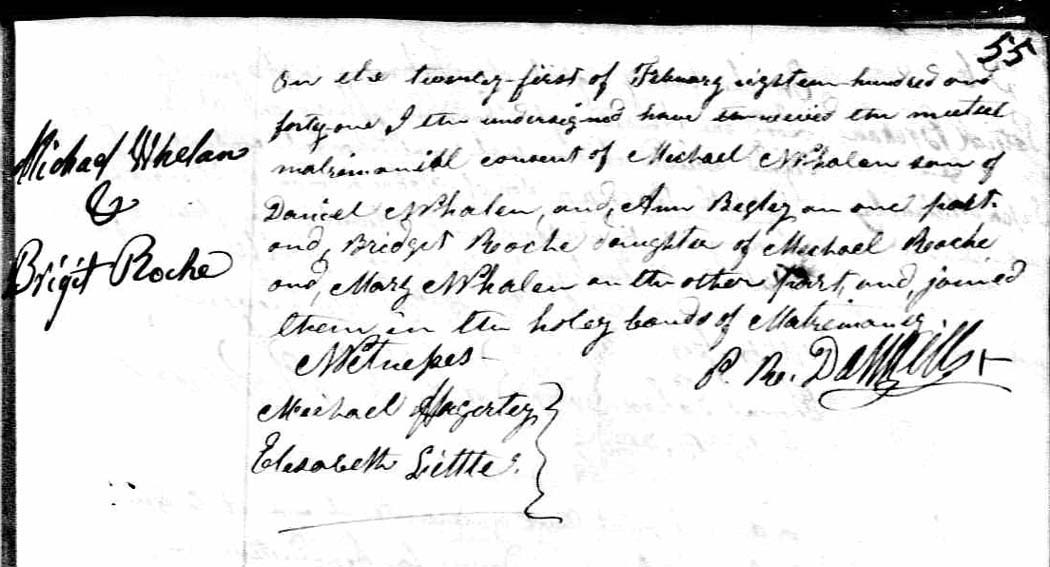 55
On the twenty-first of February eighteen hundred and
forty-one I the undersigned have received the mutual
Michael Whelan
&
Brigit Roche
matrimonial consent of Michael Whalen son of
Daniel Whalen, and, Ann Begley on one part.
and, Bridget Roache daughter of Michael Roache
and, Mary Whalen on the other part, and, joined
them in the holey bands of Matrimoney.
Witnesses
P. Re.
Michael Hagertey
Elisabeth Little